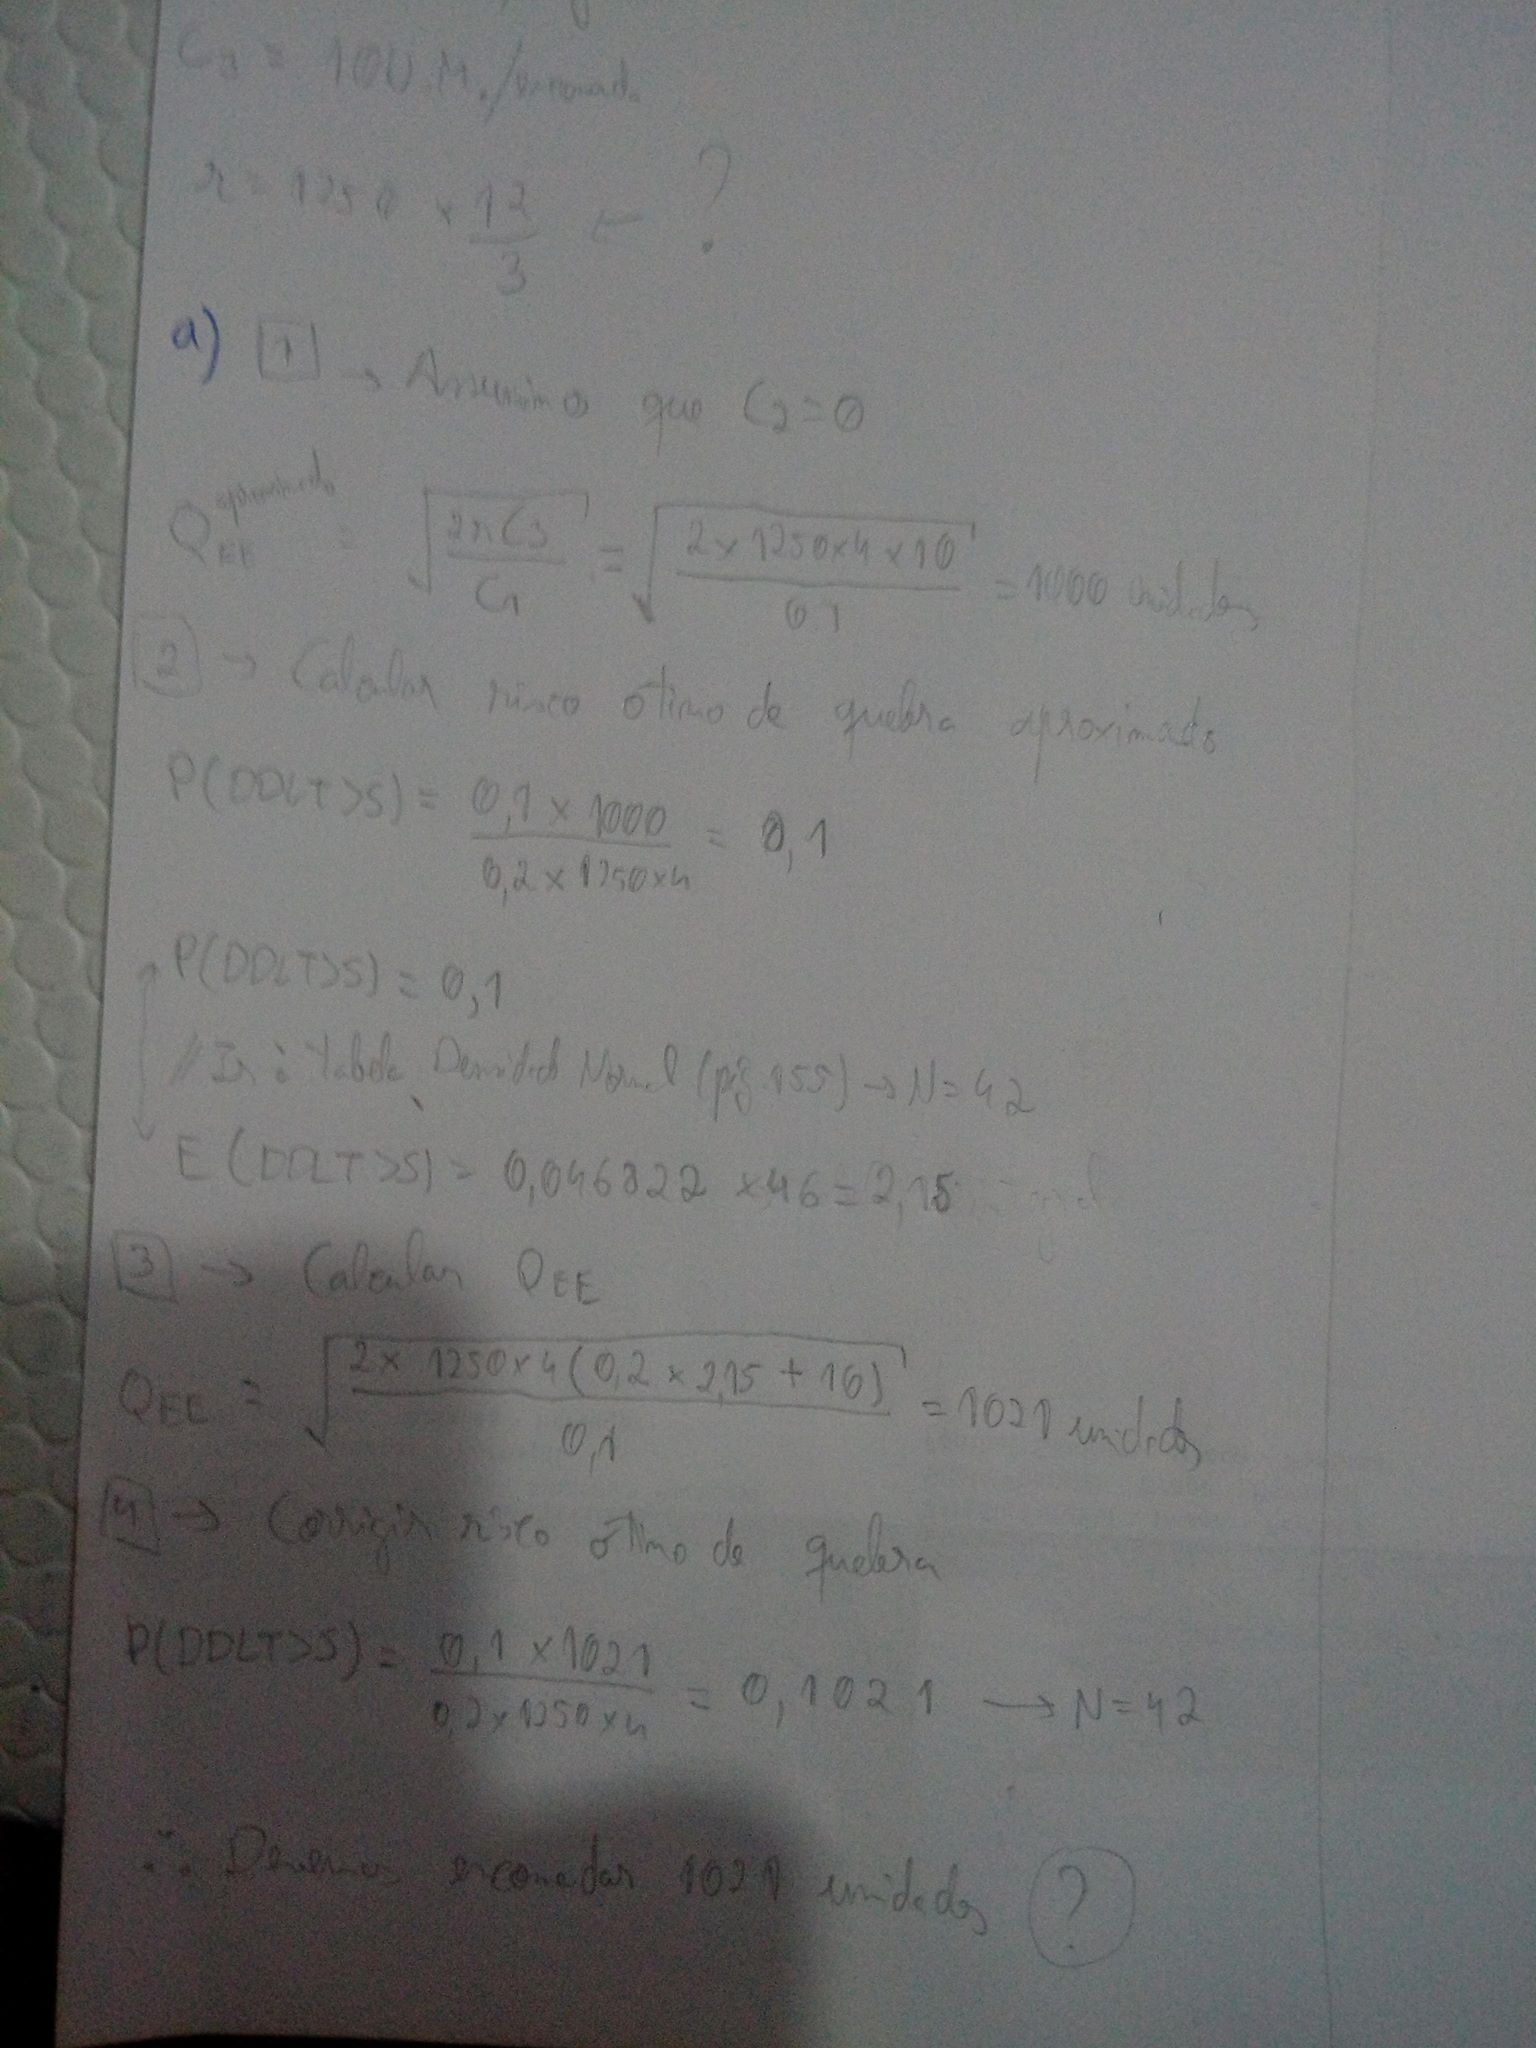 C3 = 100 M./encomenda
r = 1250 × 12/3 ← ?
a) 1 → Assumimos que C2=0
Q EE aproximado = √(2rC3/C1) = √(2×1250×4×10/0.1) = 1000 unidades
2 → Calcular risco ótimo de quebra aproximado
P(DDLT>S) = 0,1 × 1000 / 0,2 × 1250×4 = 0,1
P(DDLT>S) = 0,1
// Ir à tabela Densidade Normal (pág 155) → N=42
E(DDLT>S) = 0,046822 × 46 = 2,15
3 → Calcular QEE
QEE = √(2× 1250×4(0,2 × 2,15 + 10)/0,1) = 1021 unidades
4 → Corrigir risco ótimo de quebra
P(DDLT>S) = 0,1 × 1021 / 0,2×1250×4 = 0,1021 → N=42
∴ Devemos encomendar 1021 unidades ?